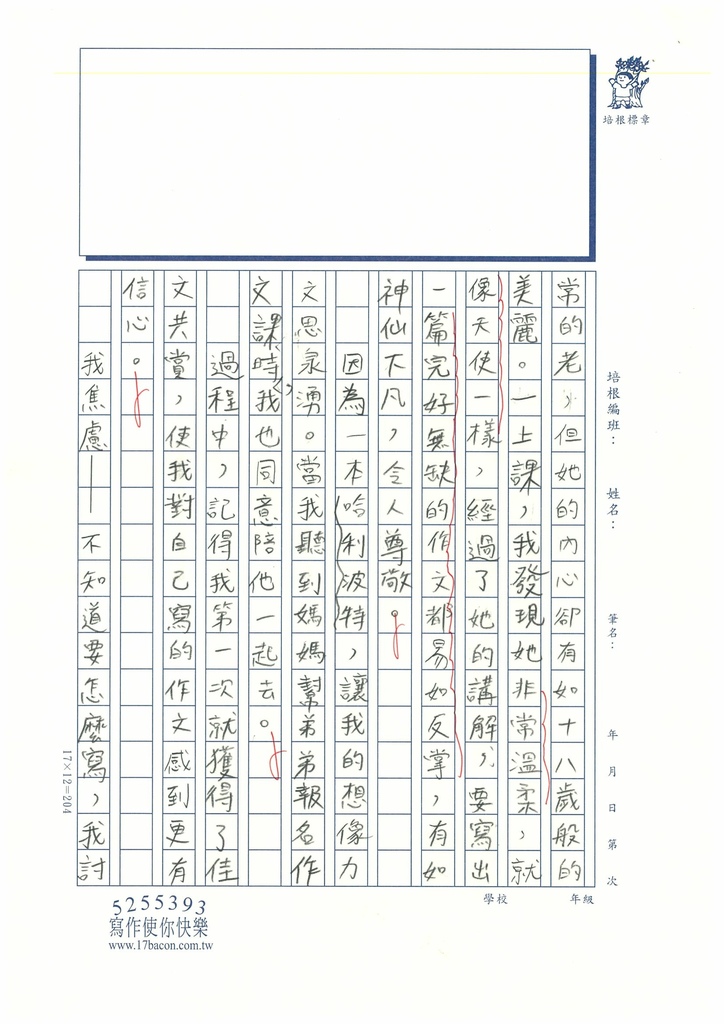 培根標章
培根編班：
姓名：
筆名：
年　月　日　第　次
常的老，但她的內心卻有如十八歲般的
美麗。一上課，我發現她非常溫柔，就
像天使一樣，經過了她的講解，要寫出
一篇完好無缺的作文都易如反掌，有如
神仙下凡，令人尊敬。
因為一本哈利波特，讓我的想像力
文思泉湧。當我聽到媽媽幫弟弟報名作
文課時，我也同意陪他一起去。
過程中，記得我第一次就獲得了佳
文共賞，使我對自己寫的作文感到更有
信心。
我焦慮——不知道要怎麼寫，我討
17×12=204
學校
年級
5255393
寫作使你快樂
www.17bacon.com.tw